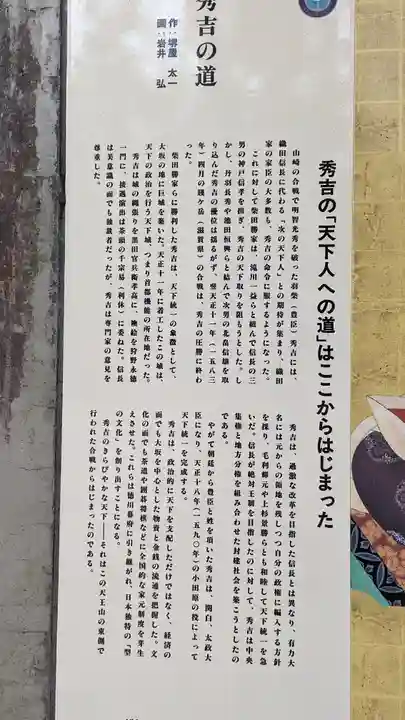 秀吉の道
作：堺屋　太一
画：岩井　弘
秀吉の「天下人への道」はここからはじまった
山崎の合戦で明智光秀を破った羽柴（豊臣）秀吉には、
織田信長に代わる「次の天下人」との期待が集まり、織田
家の家臣の大多数も、秀吉の命令に服するようになった。
これに対して柴田勝家は、滝川一益らと組んで信長の三
男の神戸信孝を担ぎ、秀吉の天下取りを阻もうとした。し
かし、丹羽長秀や池田恒興らと結んで次男の北畠信雄を取
り込んだ秀吉の優位は揺るがず、翌天正十一年（一五八三
年）四月の賤ケ岳（滋賀県）の合戦は、秀吉の圧勝に終わ
った。
柴田勝家らに勝利した秀吉は、天下統一の象徴として、
大坂の地に巨城を築いた。天正十一年に着工したこの城は、
天下の政治を行う天下城、つまり首都機能の所在地だった。
秀吉は城の縄張りを黒田官兵衛孝高に、襖絵を狩野永徳
一門に、接遇演出は茶頭の千宗易（利休）に委ねた。信長
は美意識の面でも独裁者だったが、秀吉は専門家の意見を
尊重した。
秀吉は、過激な改革を目指した信長とは異なり、有力大
名には元からの領地を残しつつ自分の政権に編入する方針
を採り、毛利輝元や上杉景勝らとも和睦して天下統一を急
いだ。信長が絶対王制を目指したのに対して、秀吉は中央
集権と地方分権を組み合わせた封建社会を築こうとしたの
である。
やがて朝廷から豊臣と姓を頂いた秀吉は、関白、太政大
臣になり、天正十八年（一五九〇年）の小田原の役によって
天下統一を完成する。
秀吉は、政治的に天下を支配しただけではなく、経済の
面でも大坂を中心とした物資と金銭の流通を把握した。文
化の面でも茶道や囲碁将棋などに全国的な家元制度を芽生
えさせた。これらは徳川幕府に引き継がれ、日本独特の「型
の文化」を創り出すことになる。
秀吉のきらびやかな天下――それはこの天王山の東側で
行われた合戦からはじまったのである。